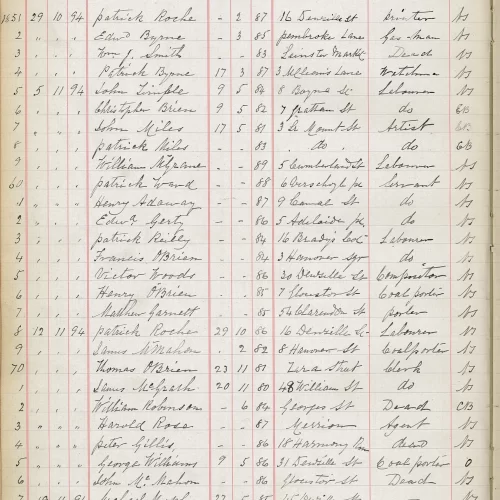 1851 29 10 94 Patrick Roche - 2 87 16 Denzille St
2 " " " Edwd Byrne - 3 85 Pembroke Lane Gas-Man NS
3 " " " Wm J. Smith - - 83 Leinster Markt Dead NS
4 " " " Patrick Byrne 17 3 87 Lane Watchman NS
5 5 11 94 John 9 5 84 8 Boyne St Labourer NS
6 " " " Christopher Brien 9 5 82 7 Grattan St do CB
7 " " " John Miles 17 5 81 3 Mount St Artist CB
8 " " " Patrick Miles - - 83 do do CB
9 " " " William - - 89 5 Cumberland St Labourer NS
60 " " " Patrick Ward - - 88 6 Pl Servant NS
1 " " " Henry Adaway - - 87 9 Canal St do NS
2 " " " Edwd Gerty - - 86 5 Adelaide Pl do NS
3 " " " Patrick Reilly - - 84 16 Bradys Cot Labourer NS
4 " " " Francis O'Brien - - 84 3 Hanover Sqr do NS
5 " " " Victor Woods - - 86 30 Denzille St Compositor NS
6 " " " Henry O'Brien - - 85 7 Gloucster St Coal porter NS
7 " " " Matthew Garnett - - 85 56 Clarendon St porter NS
8 12 11 94 Patrick Roche 29 10 86 16 Denzille St Labourer NS
9 " " " James McMahon " 2 82 8 Hanover St Coalporter NS
70 " " " Thomas O'Brien 23 11 81 Street Clerk NS
1 " " " James McGrath 20 11 80 48 William St do NS
2 " " " William Robinson - 6 84 Georges St Dead CB
3 " " " Harold Rosa - - 87 Merrion Agent NS
4 " " " Peter Gillis - - 86 18 Harmony Row dead NS
5 " " " George Williams 9 5 86 31 Denzille St Coal porter O
6 " " " John McMahon - - 86 Gloucster St Dead NS
7 11 94 Michael 5 85